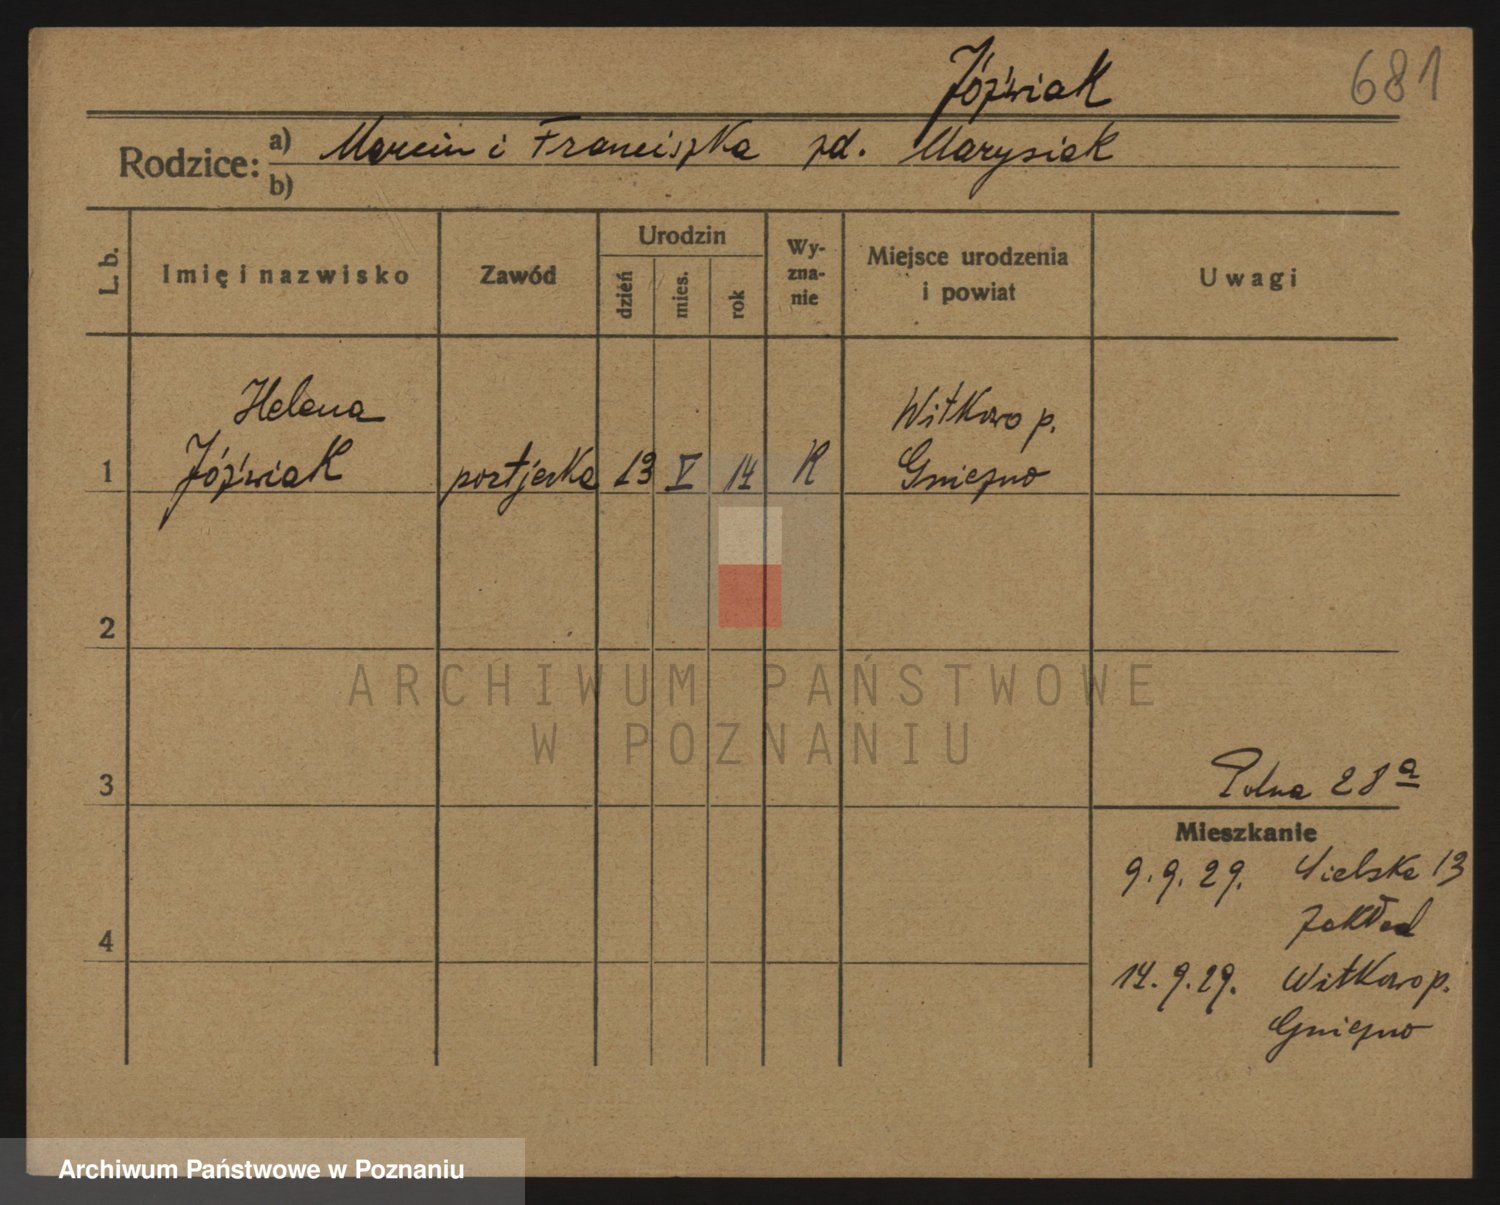 Jóźwiak
681
Rodzice: a) Marcin i Franciszka zd. Marysiak
b)
L. b. Imię i nazwisko Zawód Urodzin dzień mies. rok Wy-zna-nie Miejsce urodzenia i powiat Uwagi
Helena Witkowo p.
1 Jóźwiak portjerka 13 V 14 K Gniezno
2
ARCHIWUM PAŃSTWOWE
W POZNANIU
3 Polna 28 a
Mieszkanie
9.9.29. 13
Zakład
4
14.9.29. Witkowo p.
Gniezno
Archiwum Państwowe w Poznaniu